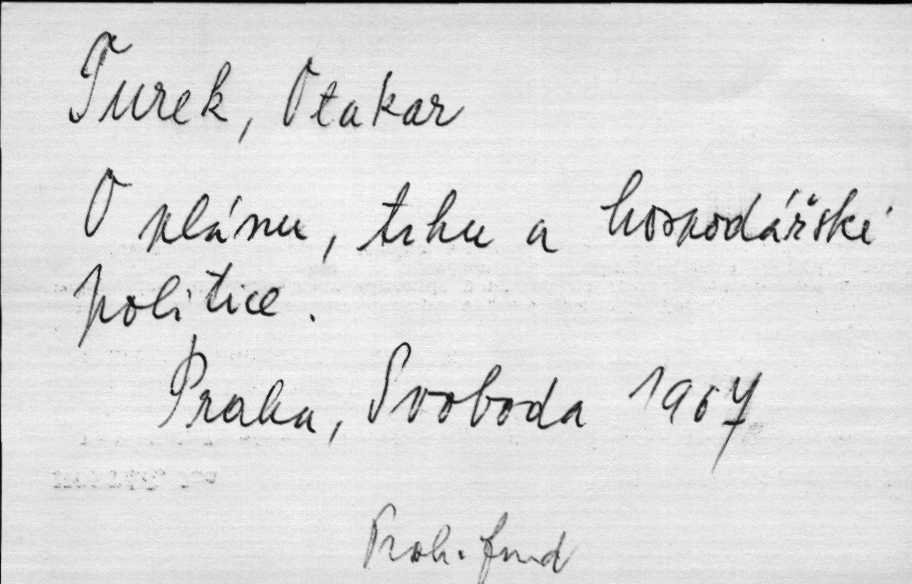 Turek, Otakar
O plánu, trhu a hospodářské
politice.
Praha, Svoboda 1967
Proh. fond